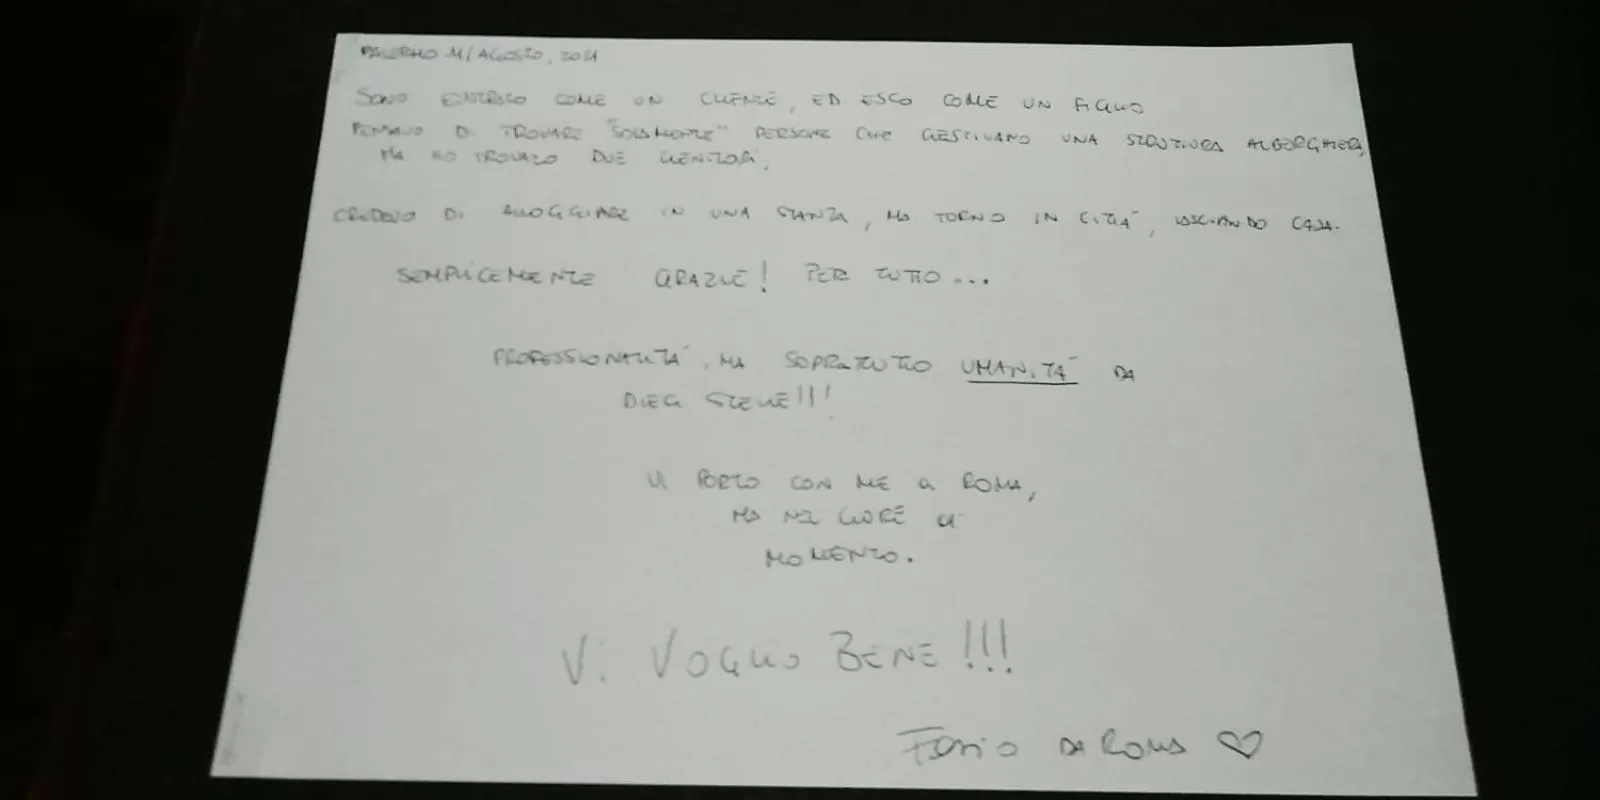 PALERMO 11/AGOSTO, 2021
SONO ENTRATO COME UN CLIENTE, ED ESCO COME UN FIGLIO
PENSAVO DI TROVARE "SOLAMENTE" PERSONE CHE GESTIVANO UNA STRUTTURA ALBERGHIERA,
MA HO TROVATO DUE GENITORI.
CREDEVO DI ALLOGGIARE IN UNA STANZA, MA TORNO IN CITTÀ, LASCIANDO CASA.
SEMPLICEMENTE GRAZIE! PER TUTTO...
PROFESSIONALITÀ, MA SOPRATUTTO UMANITÀ DA
DIECI STELLE!!!
VI PORTO CON ME A ROMA,
MA NEL CUORE
MOMENTO.
VI VOGLIO BENE!!!
DA ROMA